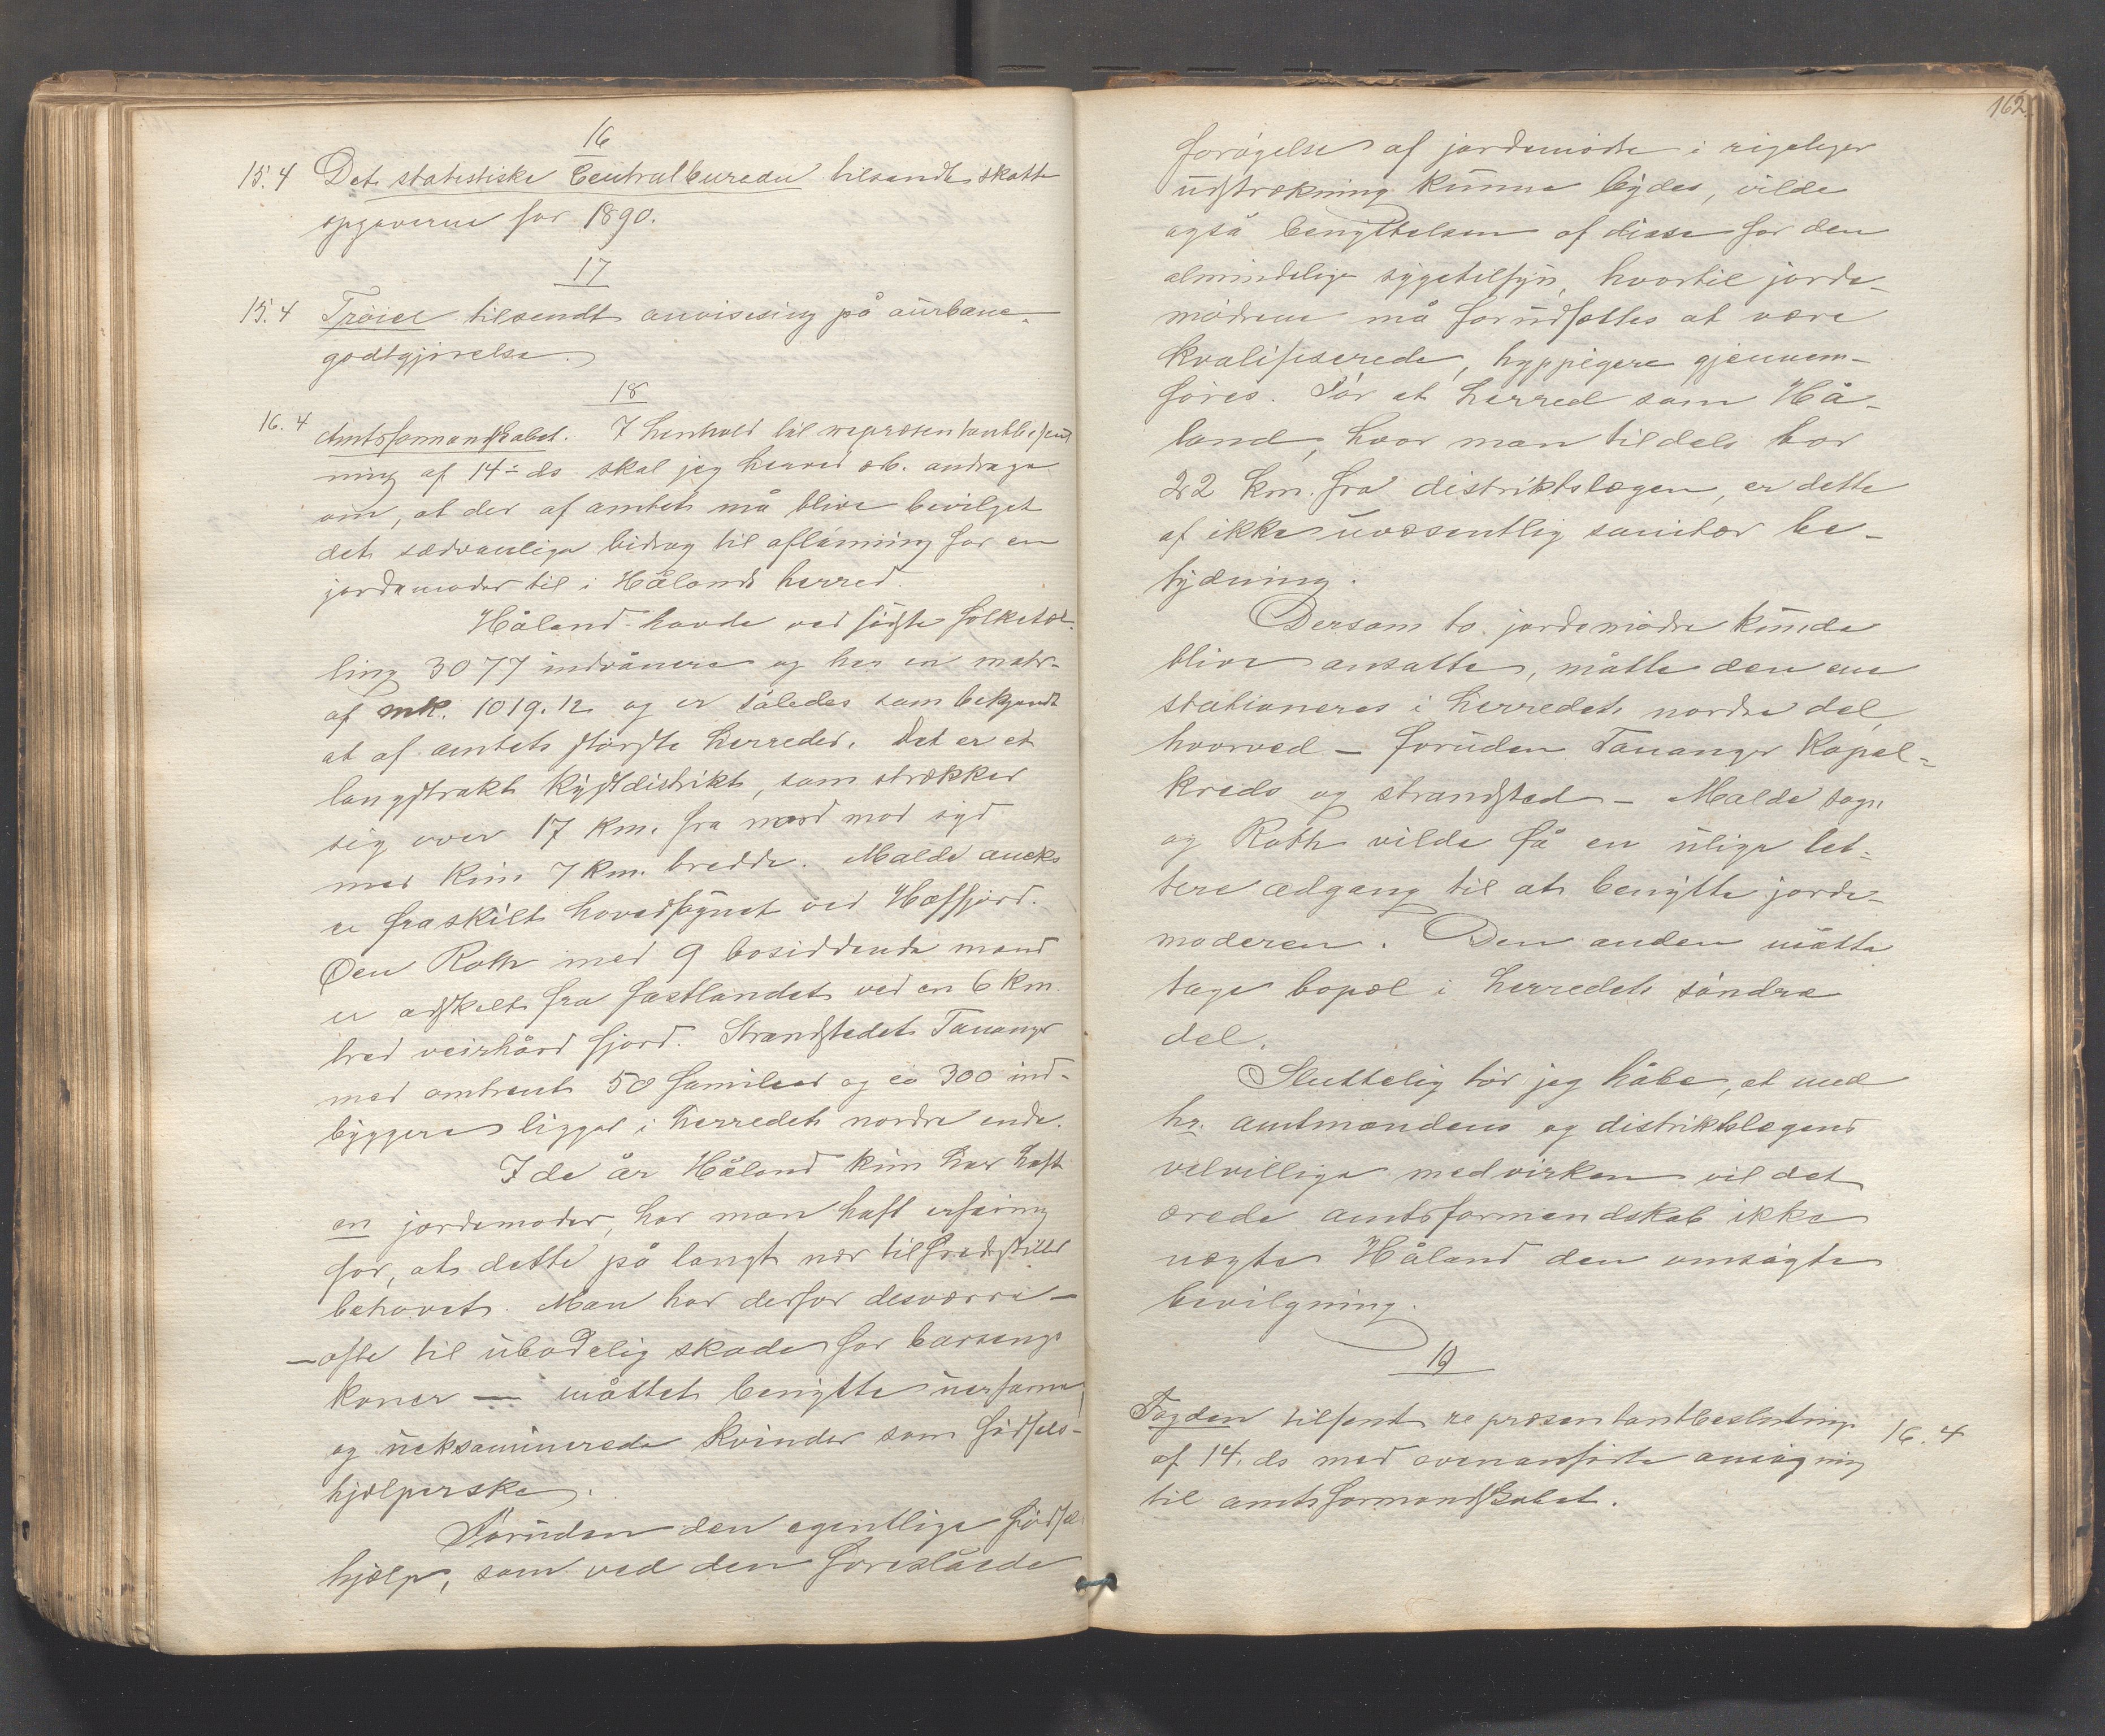 16
15.4 Det statistiske Centralbureau tilsendt skatte
opgaverne for 1890.
17
15.4 Trøiel tilsendt anvisning på aurbane-
godtgjørelse.
18
16.4 Amtsformandskabet. I henhold til repræsentantbeslut
ning af 14de ds skal jeg herved ærb. andrage
om, at der af amtet må blive bevilget
det sædvanlige bidrag til aflønning for en
jordemoder til i Hålands herred.
Håland havde ved sidste folketæl-
ling 3077 indvånere og har en matr.
af mk. 1019.12 og er således som bekjendt
et af amtets største herreder. Det er et
langstrakt kystdistrikt, som strækker
sig over 17 km. fra nord mod syd
med kun 7 km. bredde. Malde anneks
er fraskilt hovedsognet ved Hafsfjord.
Øen Roth med 9 bosiddende mænd
er adskilt fra fastlandet ved en 6 km.
bred veirhård fjord. Strandstedet Tananger
med omtrent 50 familier og ca 300 ind-
byggere ligger i herredets nordre ende.
I de år Håland kun har haft
en jordemoder, har man haft erfaring
for, at dette på langt nær tilfredsstiller
behovet. Man har derfor desværre —
— ofte til ubodelig skade for barsengs
koner — måttet benytte uerfarne
og ueksaminerede kvinder som fødsels-
hjælperske.
Foruden den egentlige fødsels
hjælp, som ved den foreslåede
162.
forøgelse af jordemødre i rigeligere
udstrækning kunne bydes, vilde
også benyttelsen af disse for den
almindelige sygetilsyn, hvortil jorde-
mødrene må forudsættes at være
kvalifiserede, hyppigere gjennem-
føres. For et herred som Hå-
land, hvor man tildels bor
22 km. fra distriktslægen, er dette
af ikke uvæsentlig sanitær be-
tydning.
Dersom to jordemødre kunde
blive ansatte, måtte den ene
stationeres i herredets nordre del
hvorved – foruden Tananger Kapel-
kreds og strandsted – Malde sogn
og Roth vilde få en ulige let-
tere adgang til at benytte jorde-
moderen. Den anden måtte
tage bopæl i herredets søndre
del.
Sluttelig tør jeg håbe, at med
hr. amtmandens og distriktslægens
velvillige medvirken vil det
ærede amtsformandskab ikke
nægte Håland den omsøgte
bevilgning.
19
Fogden tilsent repræsentantbeslutning 16.4
af 14. ds med ovenanførte ansøgning
til amtsformandskabet.